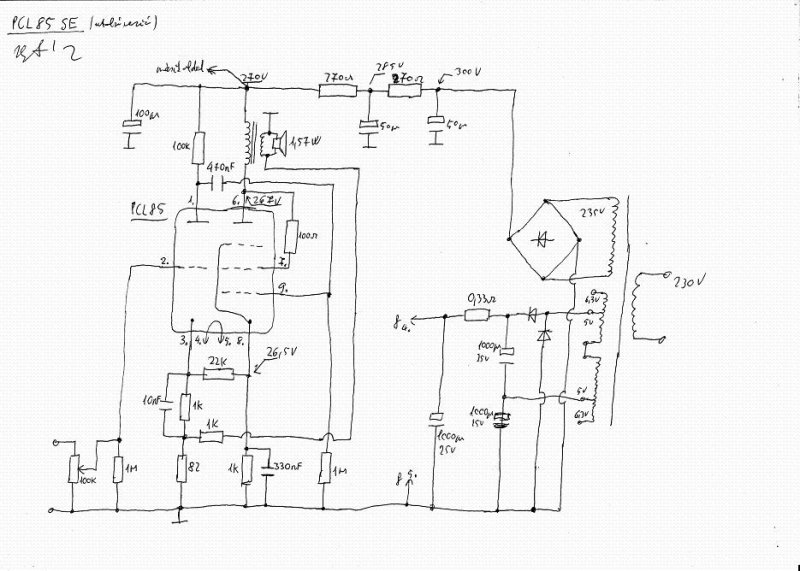 PCL85 SE
270V
285V
300V
270Ω
270Ω
100µ
50µ
50µ
100K
470nF
1,57W
1.
6.
267V
PCL85
100Ω
2.
7.
9.
3.
4.
5.
8.
26,5V
22K
10nF
1K
1K
100K
1M
82
1K
330nF
1M
235V
230V
6,3V
5V
0,33Ω
1000µ
25V
5V
6,3V
1000µ
25V
1000µ
25V